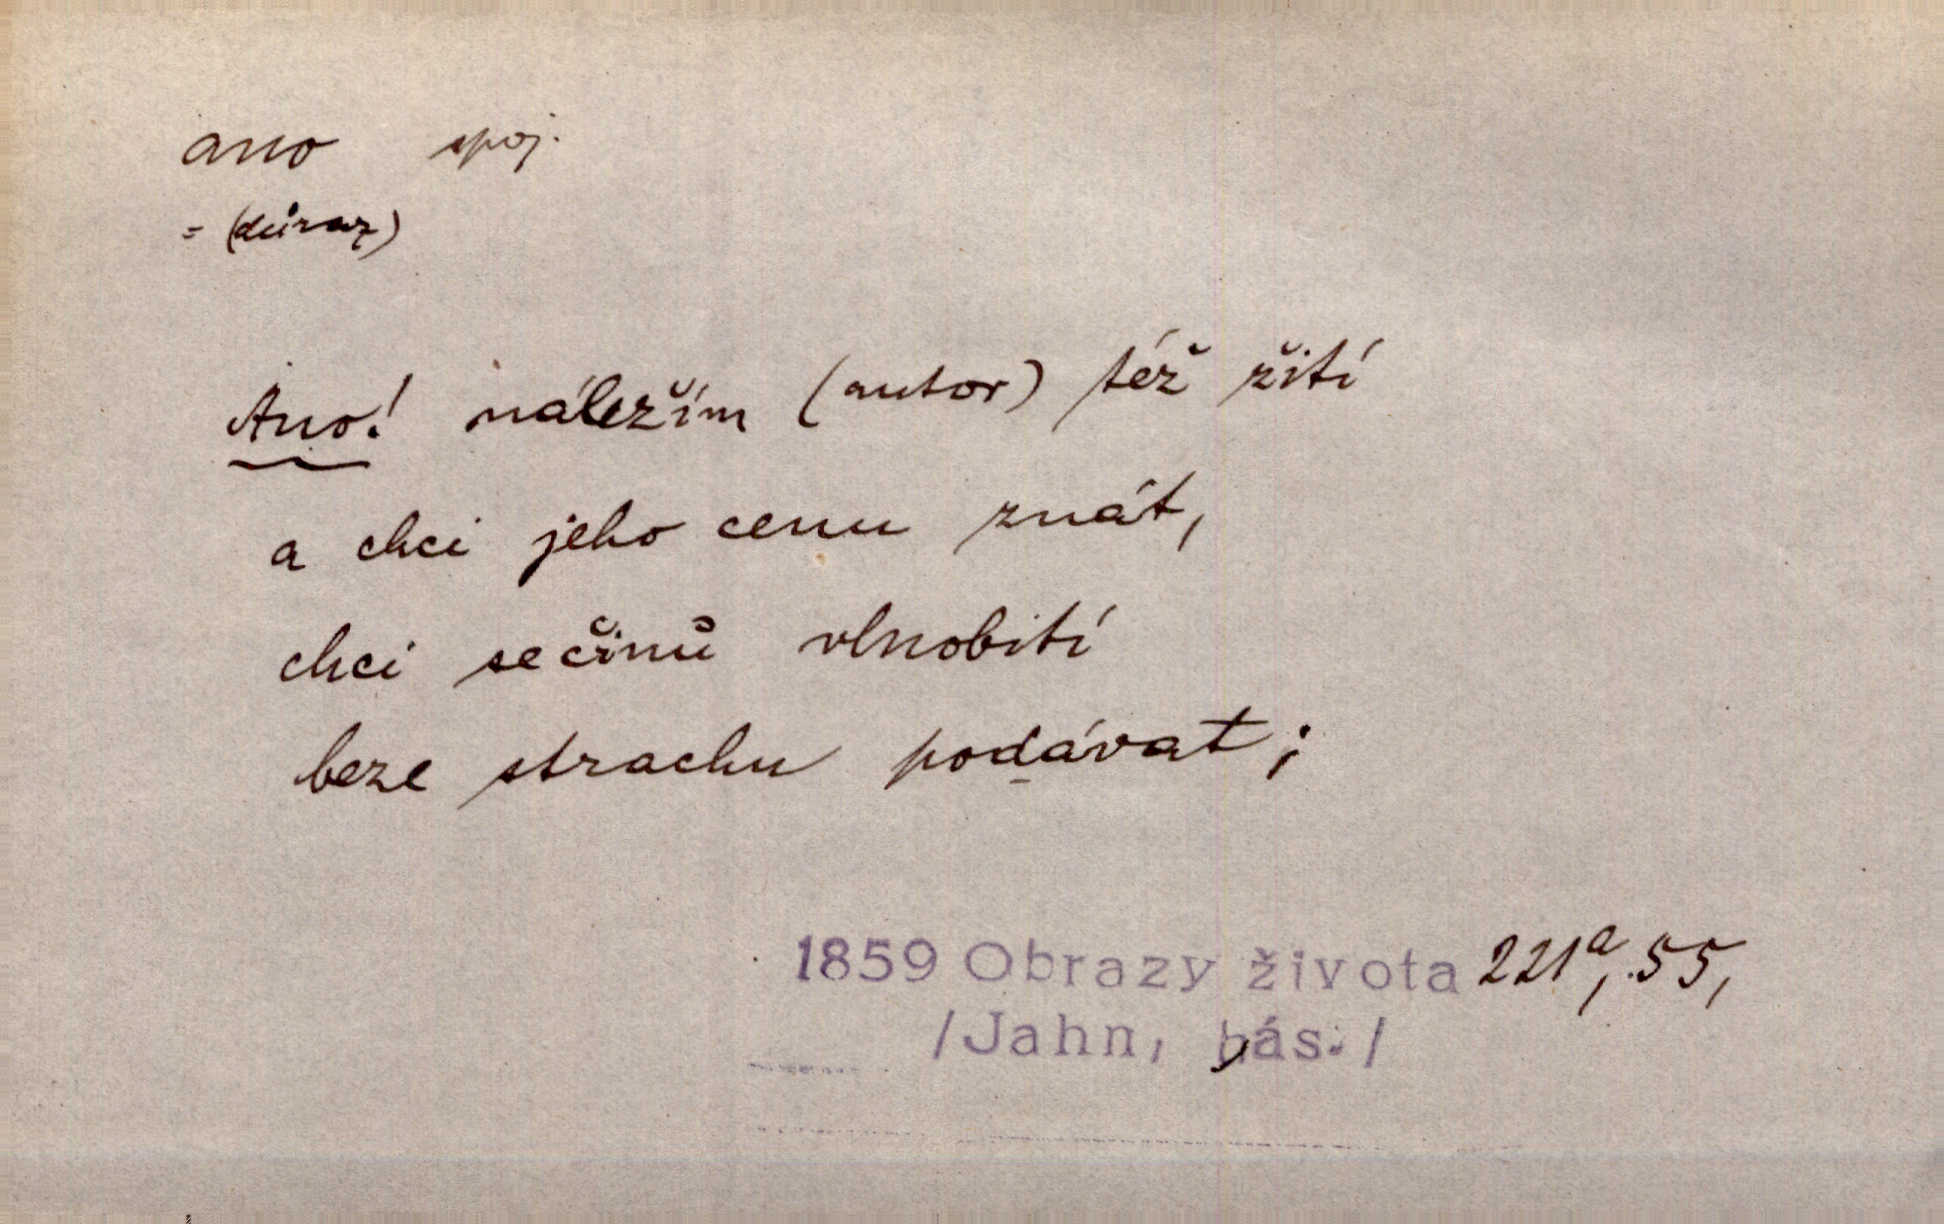 ano spoj.
= (důraz)
Ano! náležím (autor) též žití
a chci jeho cenu znát,
chci se činů vlnobití
beze strachu podávat;
1859 Obrazy života 221a, 55,
/Jahn, bás./